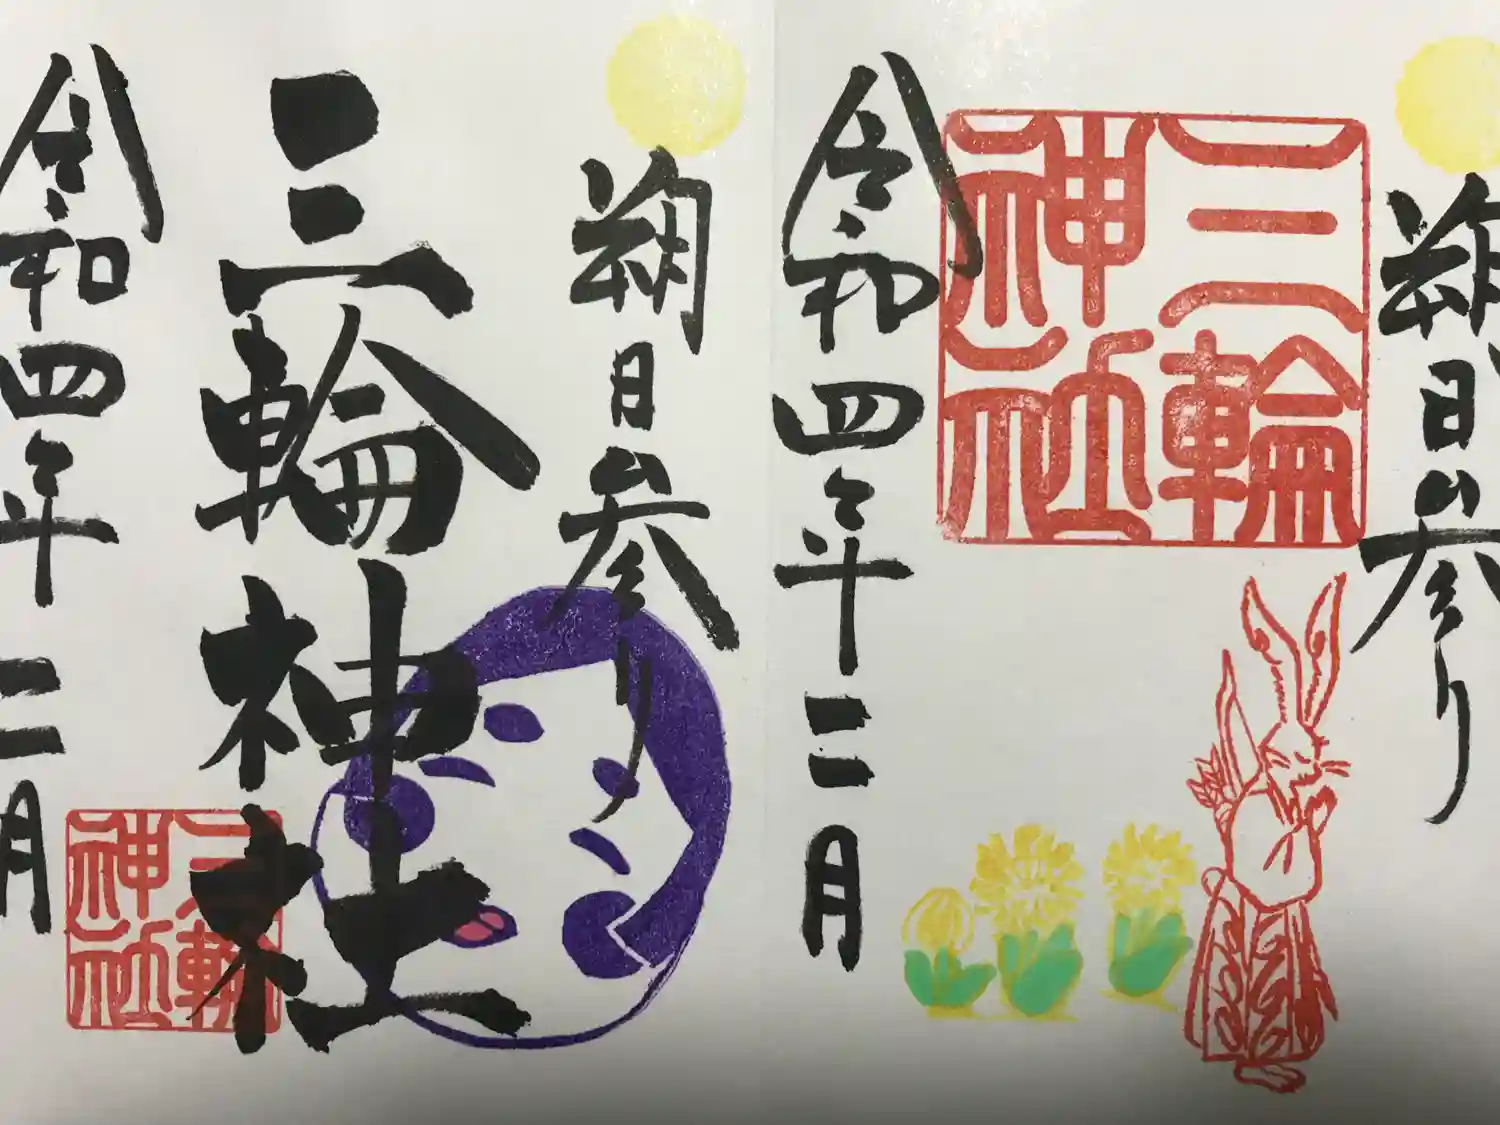 朔日参り
三輪神社
令和四年二月
三輪神社
朔日参り
三輪神社
令和四年二月